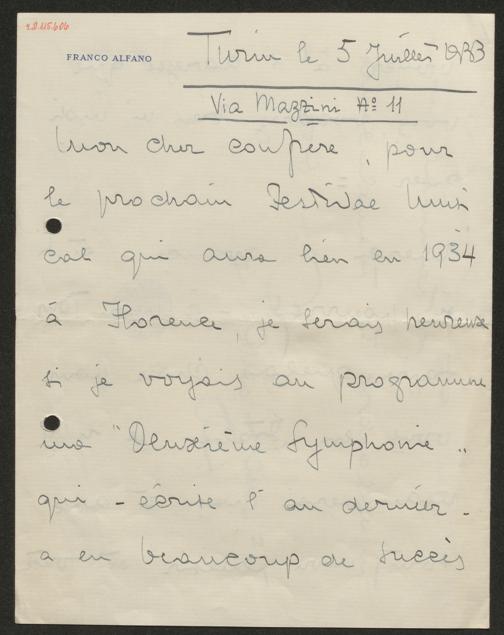 FRANCO ALFANO
Turin le 5 Juillet 1933
Via Mazzini No 11
Mon cher confrère, pour
le prochain Festival Musi
cal qui aura lieu en 1934
à Florence, je serais heureux
si je voyais au programme
ma "Deuxième Symphonie „
qui - écrite l'an dernier -
a eu beaucoup de succès